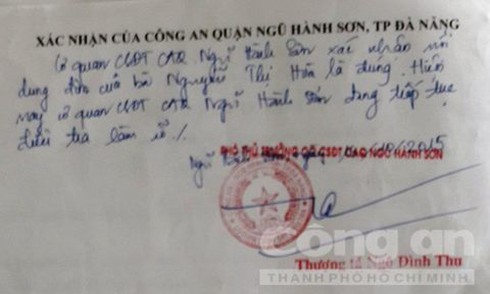 XÁC NHẬN CỦA CÔNG AN QUẬN NGŨ HÀNH SƠN, TP ĐÀ NẴNG
Cơ quan CSĐT CAQ Ngũ Hành Sơn xác nhận nội
dung đơn của bà Nguyễn Thị Hoa là đúng. Hiện
nay cơ quan CSĐT CAQ Ngũ Hành Sơn đang tiếp tục
điều tra làm rõ /.
Ngũ Hành Sơn, ngày /2015
PHÓ THỦ TRƯỞNG CQ CSĐT CAQ NGŨ HÀNH SƠN
Thượng tá Ngô Đình Thu
Công an
THÀNH PHỐ HỒ CHÍ MINH